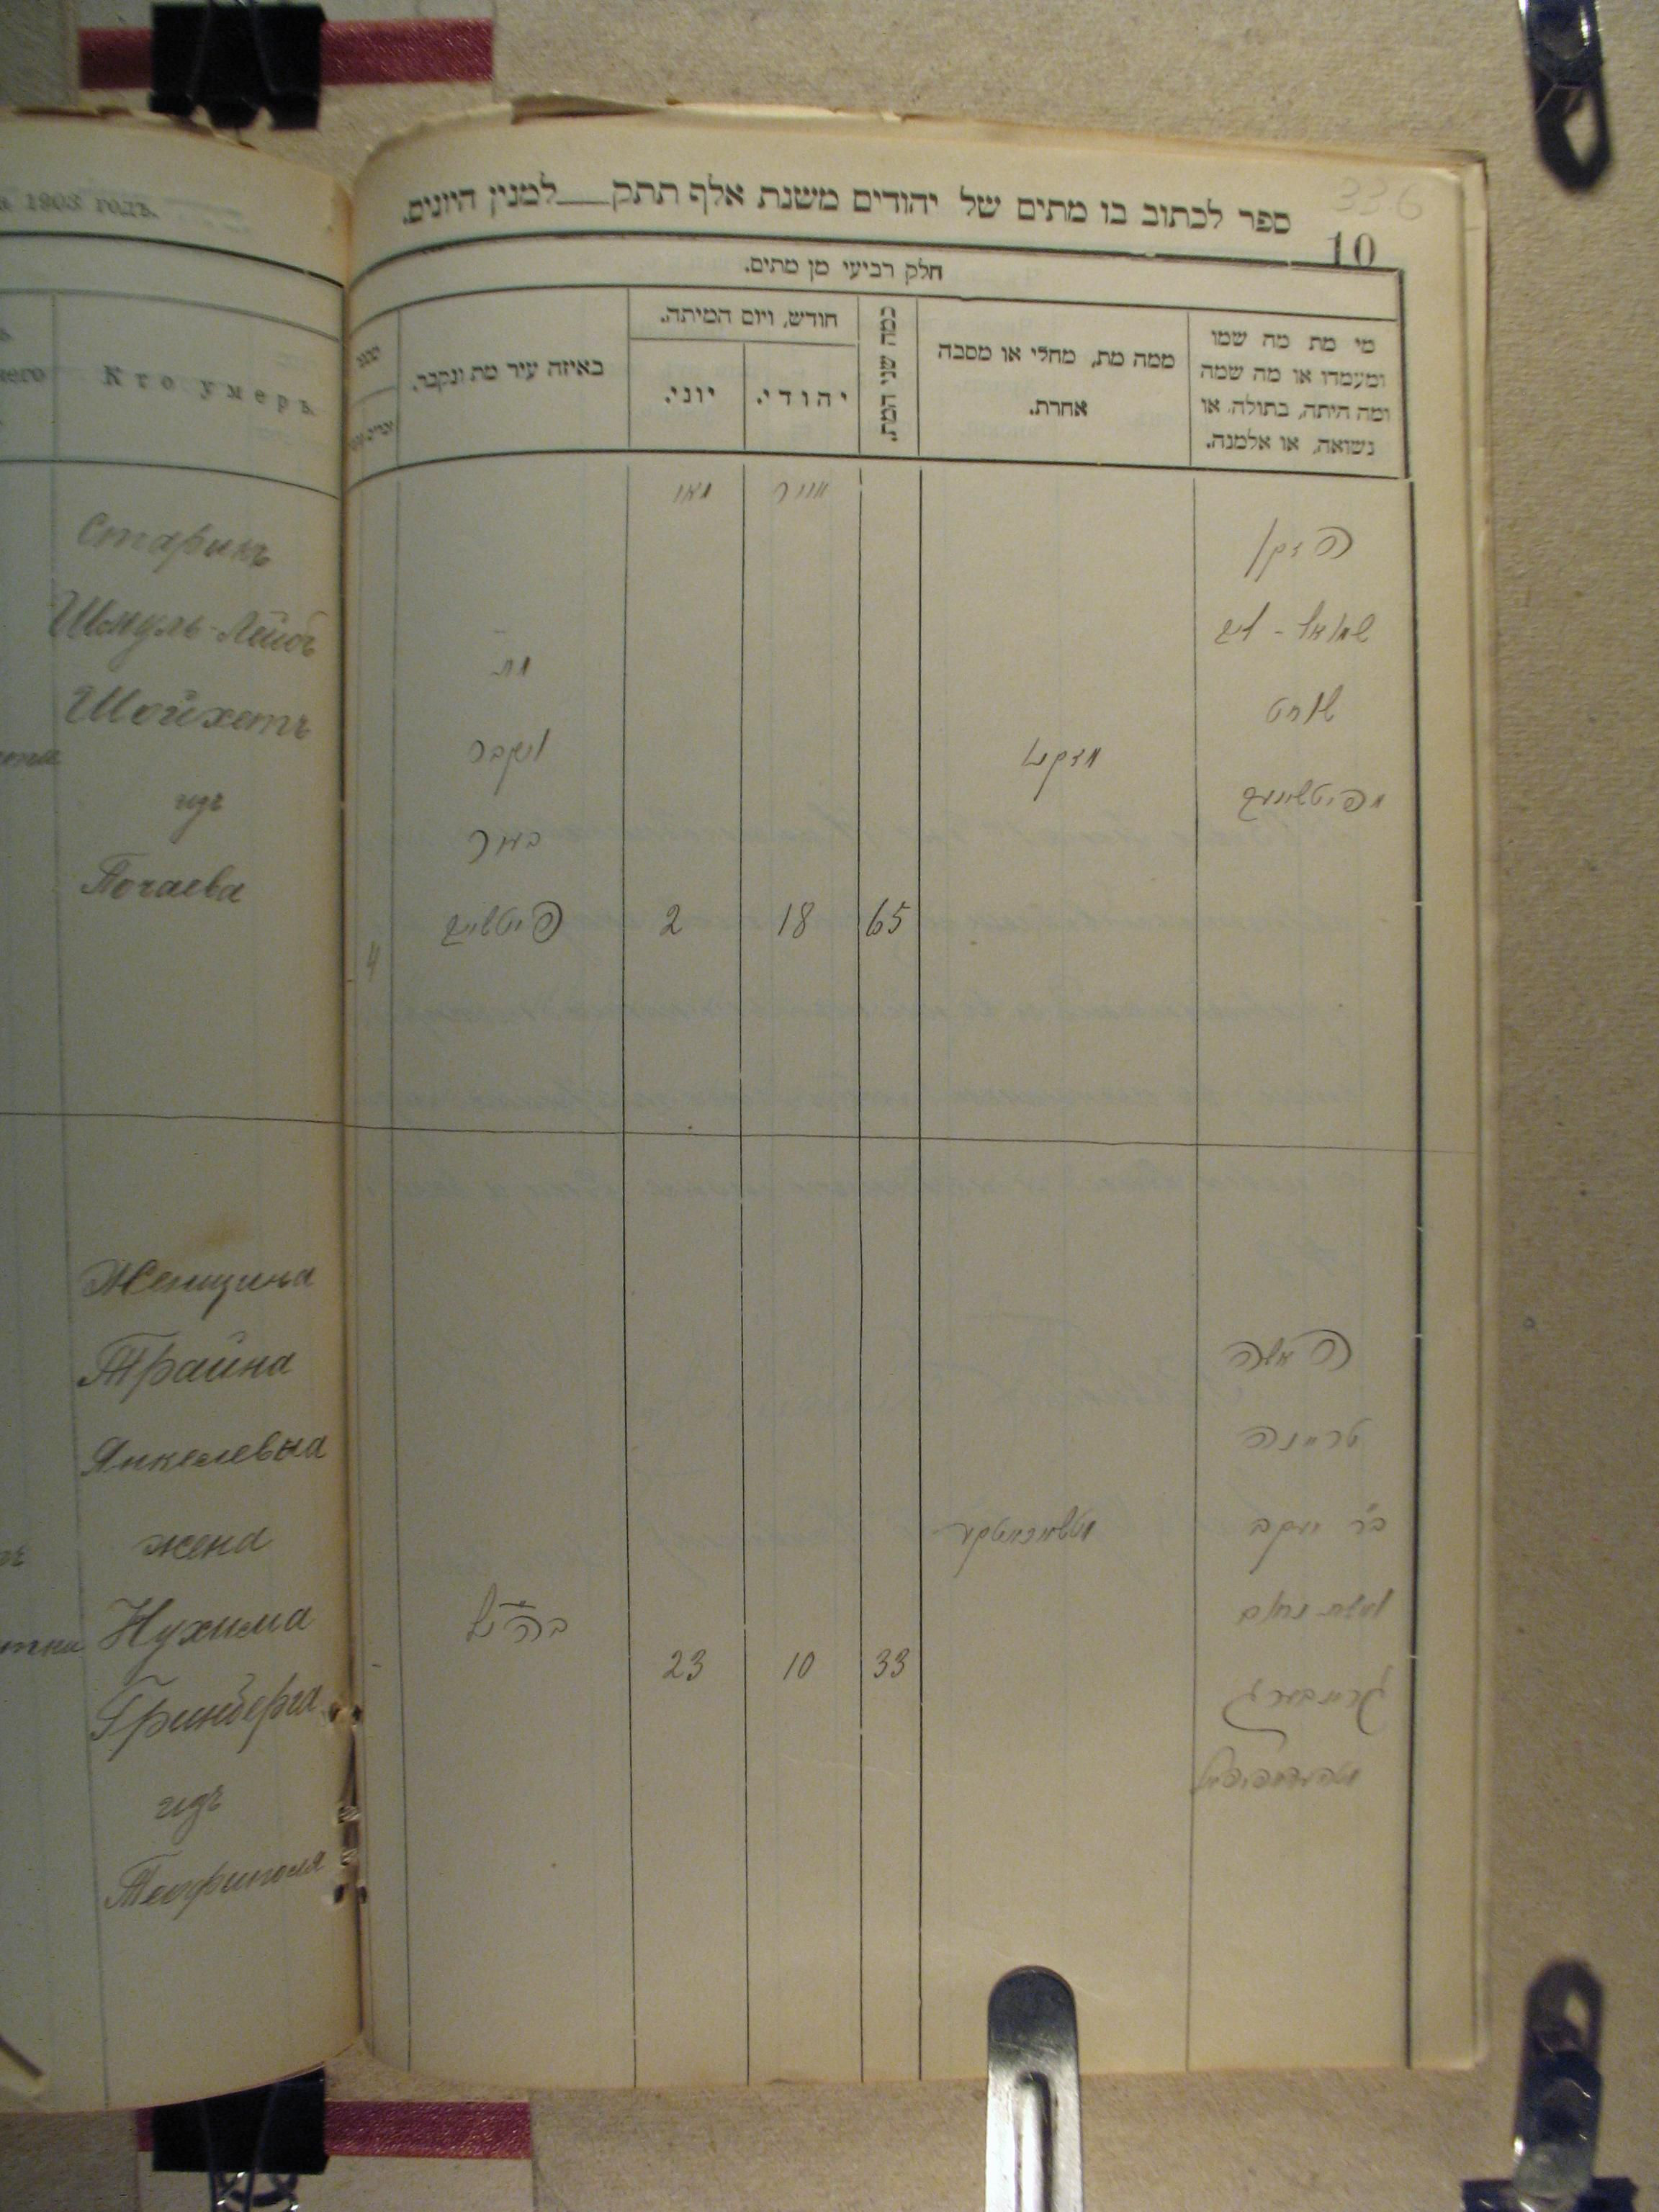 1903 годъ.
Кто умеръ.
Старикъ
Шмуль-Лейбъ
Шойхетъ
изъ
Почаева
Женщина
Трайна
Янкелевна
жена
Нухима
Гринберга
изъ
Теофиполя
336
ספר לכתוב בו מתים של יהודים משנת אלף תתק___למנין היונים.
10
חלק רביעי מן מתים.
מי מת מה שמו
ומעמדו או מה שמה
ומה היתה, בתולה, או
נשואה, או אלמנה.
ממה מת, מחלי או מסבה
אחרת.
כמה שני המת
חודש, ויום המיתה.
יהודי.
יוני.
באיזה עיר מת ונקבר.
אייר
מאי
הזקן
שמואל - ליב
שוחט
מפיטשיוב
מזקנה
65
18
2
מת
ונקבר
בעיר
פיטשיוב
4
האשה
טריינה
ב״ר יעקב
אשת נחום
גרינבערג
33
10
23
כנ״ל